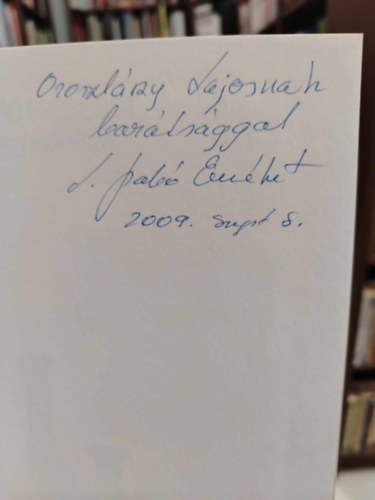 Oroszlány Lajosnak
barátsággal
L. Szabó Erzsébet
2009. Szept 8.